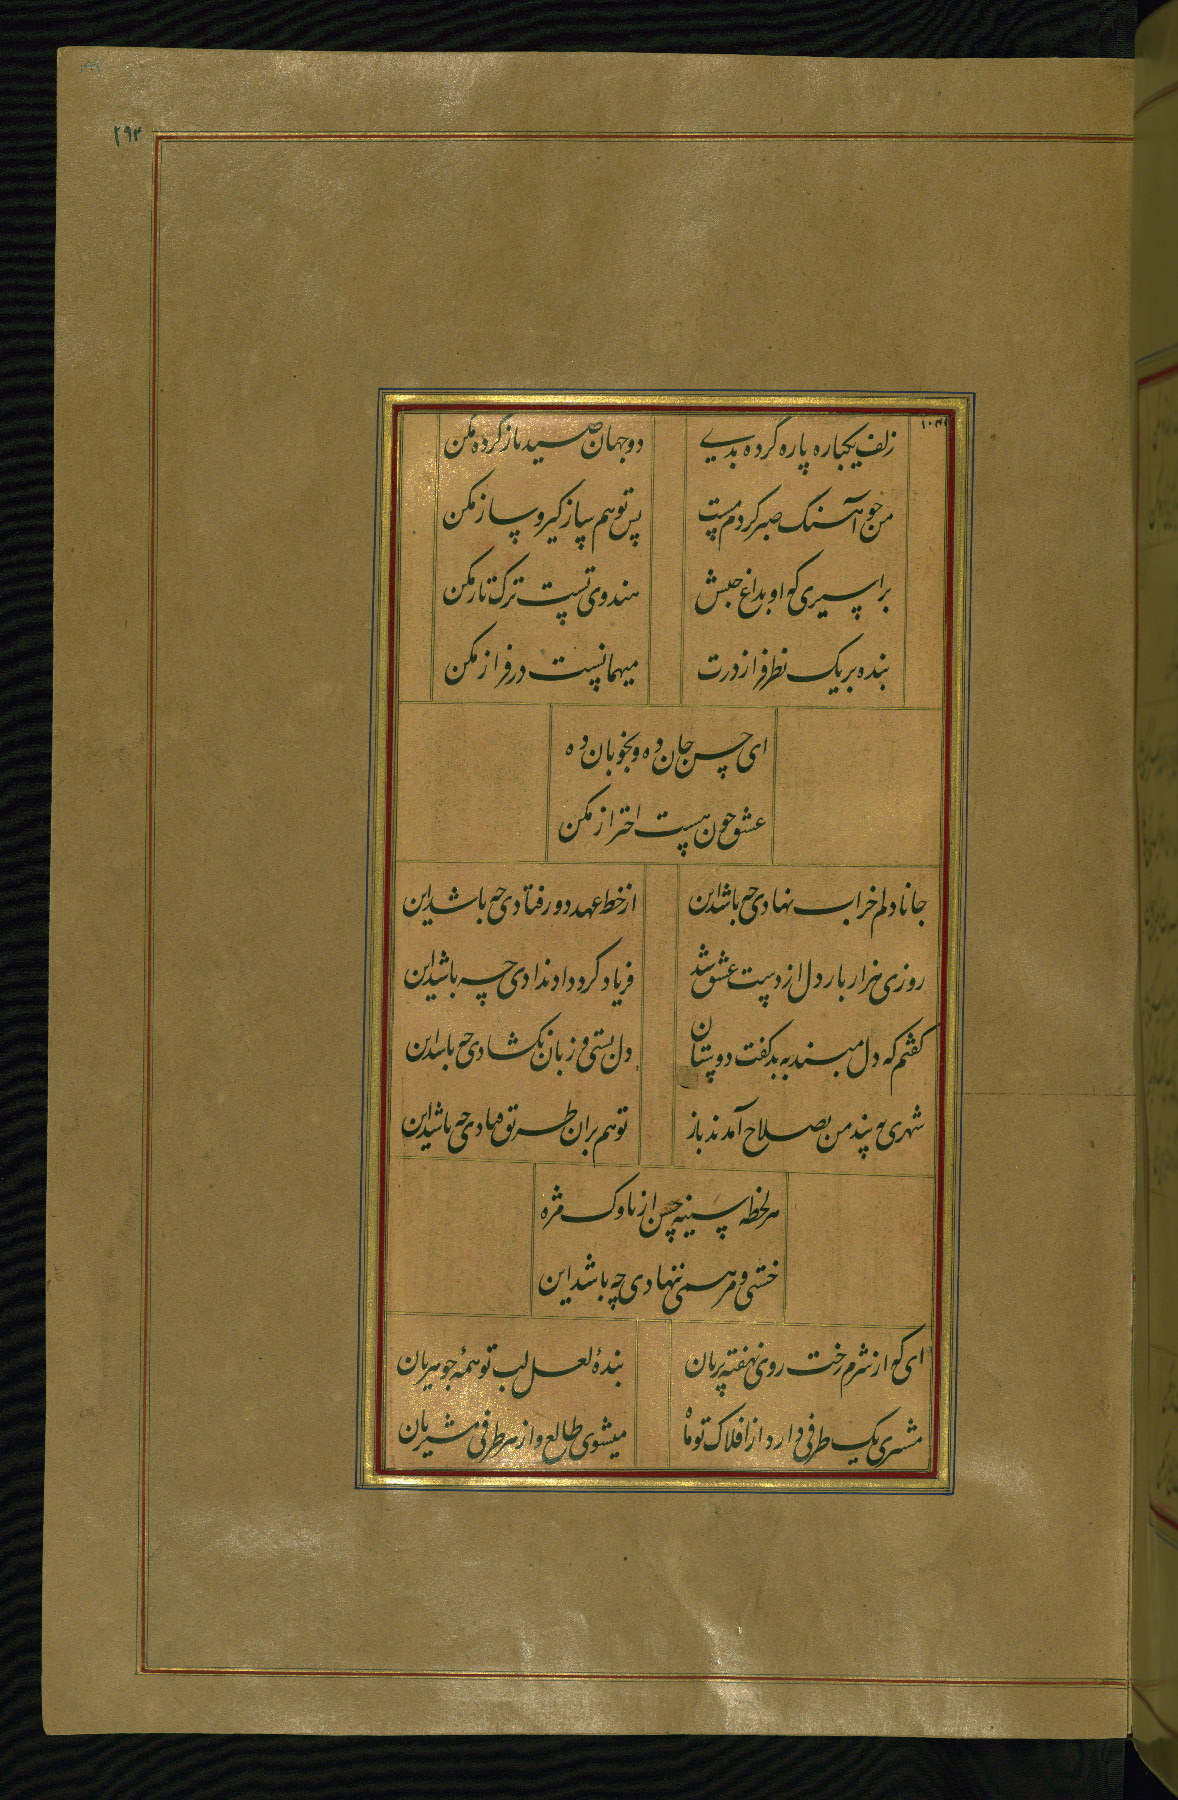 ۲۹۲
زلف یکباره پاره کرده بدی
دو جهان صید باز کرده مکن
من چو آهنگ صبر کردم پست
پس تو هم ساز گیر و ساز مکن
بر اسیری که او بداغ حبش
هندوی تست ترک تاز مکن
بنده بر یک نظر فراز درت
میهمانست در فراز مکن
ای حسن جان ده و بخوبان ده
عشق چون هست احتراز مکن
جانا دلم خراب نهادی چه باشد این
از خط عهد دور فتادی چه باشد این
روزی هزار بار دل از دست عشق شد
فریاد کرد و داد ندادی چه باشد این
گفتم که دل مبند به بد گفت دوستان
دل بستی و زبان بگشادی چه باشد این
شهری ز پند من بصلاح آمدند باز
تو هم بران طریق فسادی چه باشد این
هر لحظه سینه حسن از ناوک مژه
خستی و مرهمی ننهادی چه باشد این
ای که از شرم رخت روی نهفته پریان
بندهٔ لعل لب تو همهٔ جوهریان
مشتری یک طرفی دارد از افلاک تو ماه
میشوی طالع و از هر طرفی مشتریان